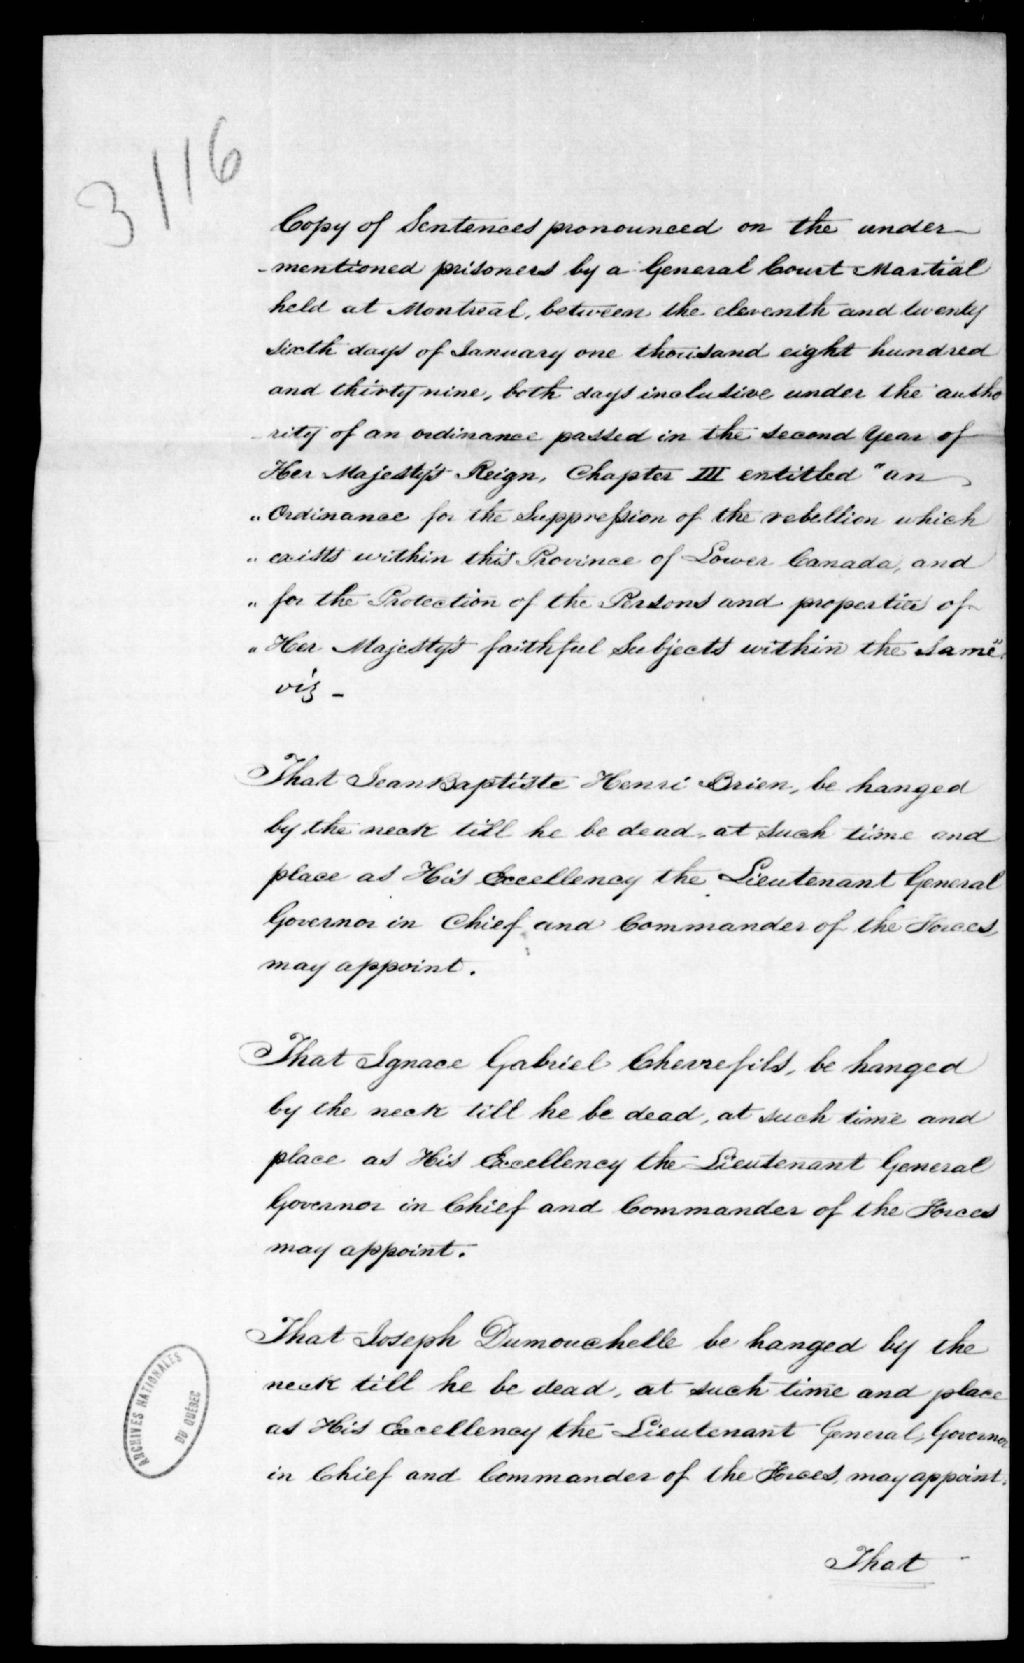 3116
Copy of Sentences pronounced on the under
-mentioned prisoners by a General Court Martial
held at Montreal, between the eleventh and twenty
sixth days of January one thousand eight hundred
and thirty nine, both days inclusive under the autho
rity of an ordinance passed in the second Year of
Her Majesty's Reign, Chapter III entitled "an
" Ordinance for the Suppression of the rebellion which
" exists within this Province of Lower Canada, and
" for the Protection of the Persons and properties of
" Her Majesty's faithful Subjects within the Same"
viz -
That Jean Baptiste Henri Brien, be hanged
by the neck till he be dead, at such time and
place as His Excellency the Lieutenant General
Governor in Chief and Commander of the Forces,
may appoint.
That Ignace Gabriel Chevrefils, be hanged
by the neck till he be dead, at such time and
place as His Excellency the Lieutenant General
Governor in Chief and Commander of the Forces
may appoint.
That Joseph Dumouchelle be hanged by the
neck till he be dead, at such time and place
as His Excellency the Lieutenant General, Governor
in Chief and Commander of the Forces, may appoint.
That -
ARCHIVES NATIONALES
DU QUÉBEC